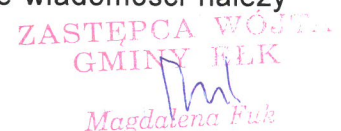 wiadomości należy
ZASTĘPCA WÓJTA
GMINY EŁK
Magdalena Fuk